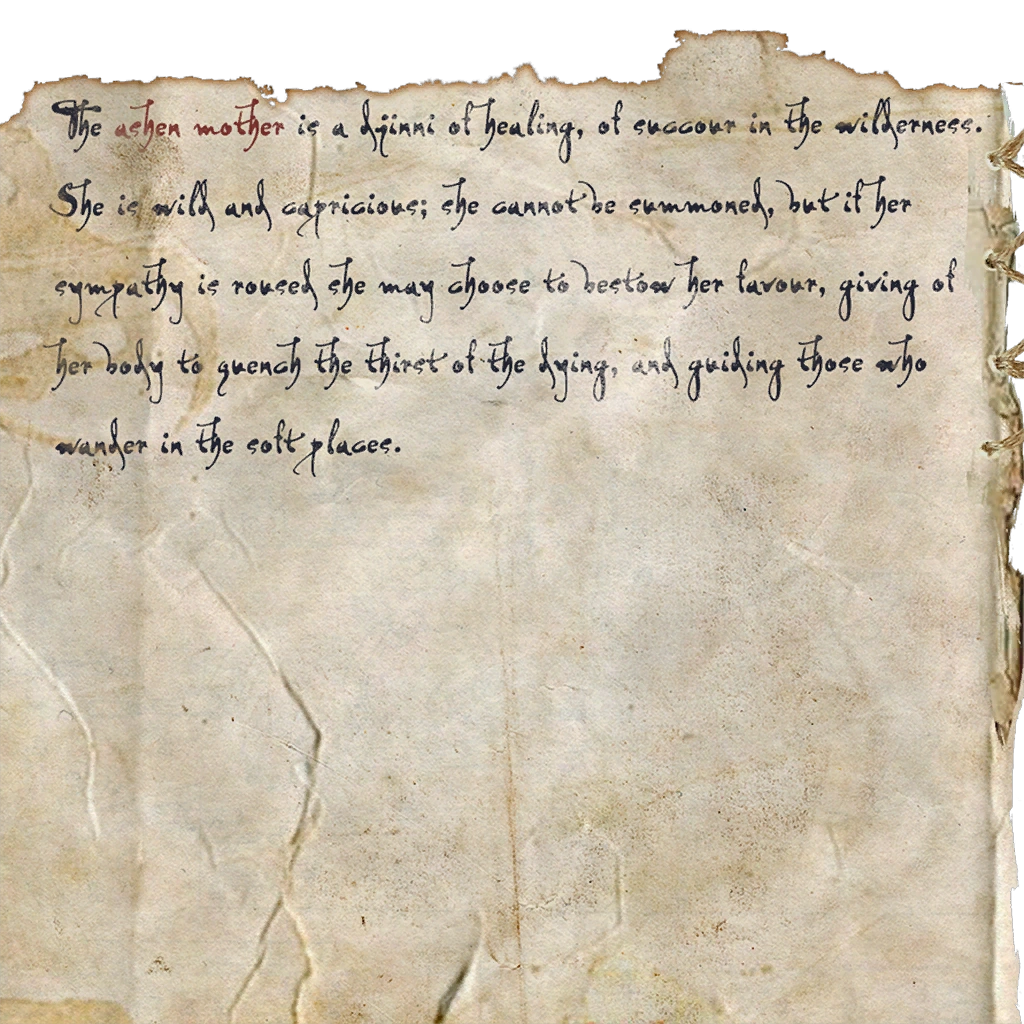 The ashen mother is a djinni of healing, of succour in the wilderness.
She is wild and capricious; she cannot be summoned, but if her
sympathy is roused she may choose to bestow her favour, giving of
her body to quench the thirst of the dying, and guiding those who
wander in the soft places.